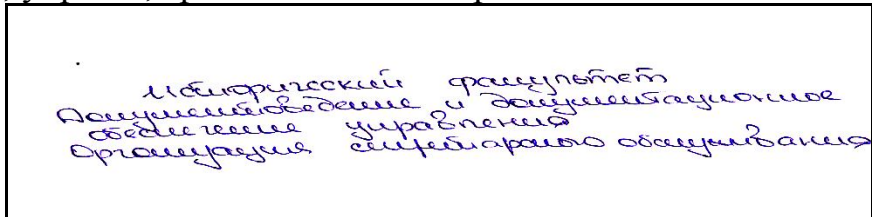 Исторический факультет
Документоведение и документационное
обеспечение управления
Организация секретарского обслуживания